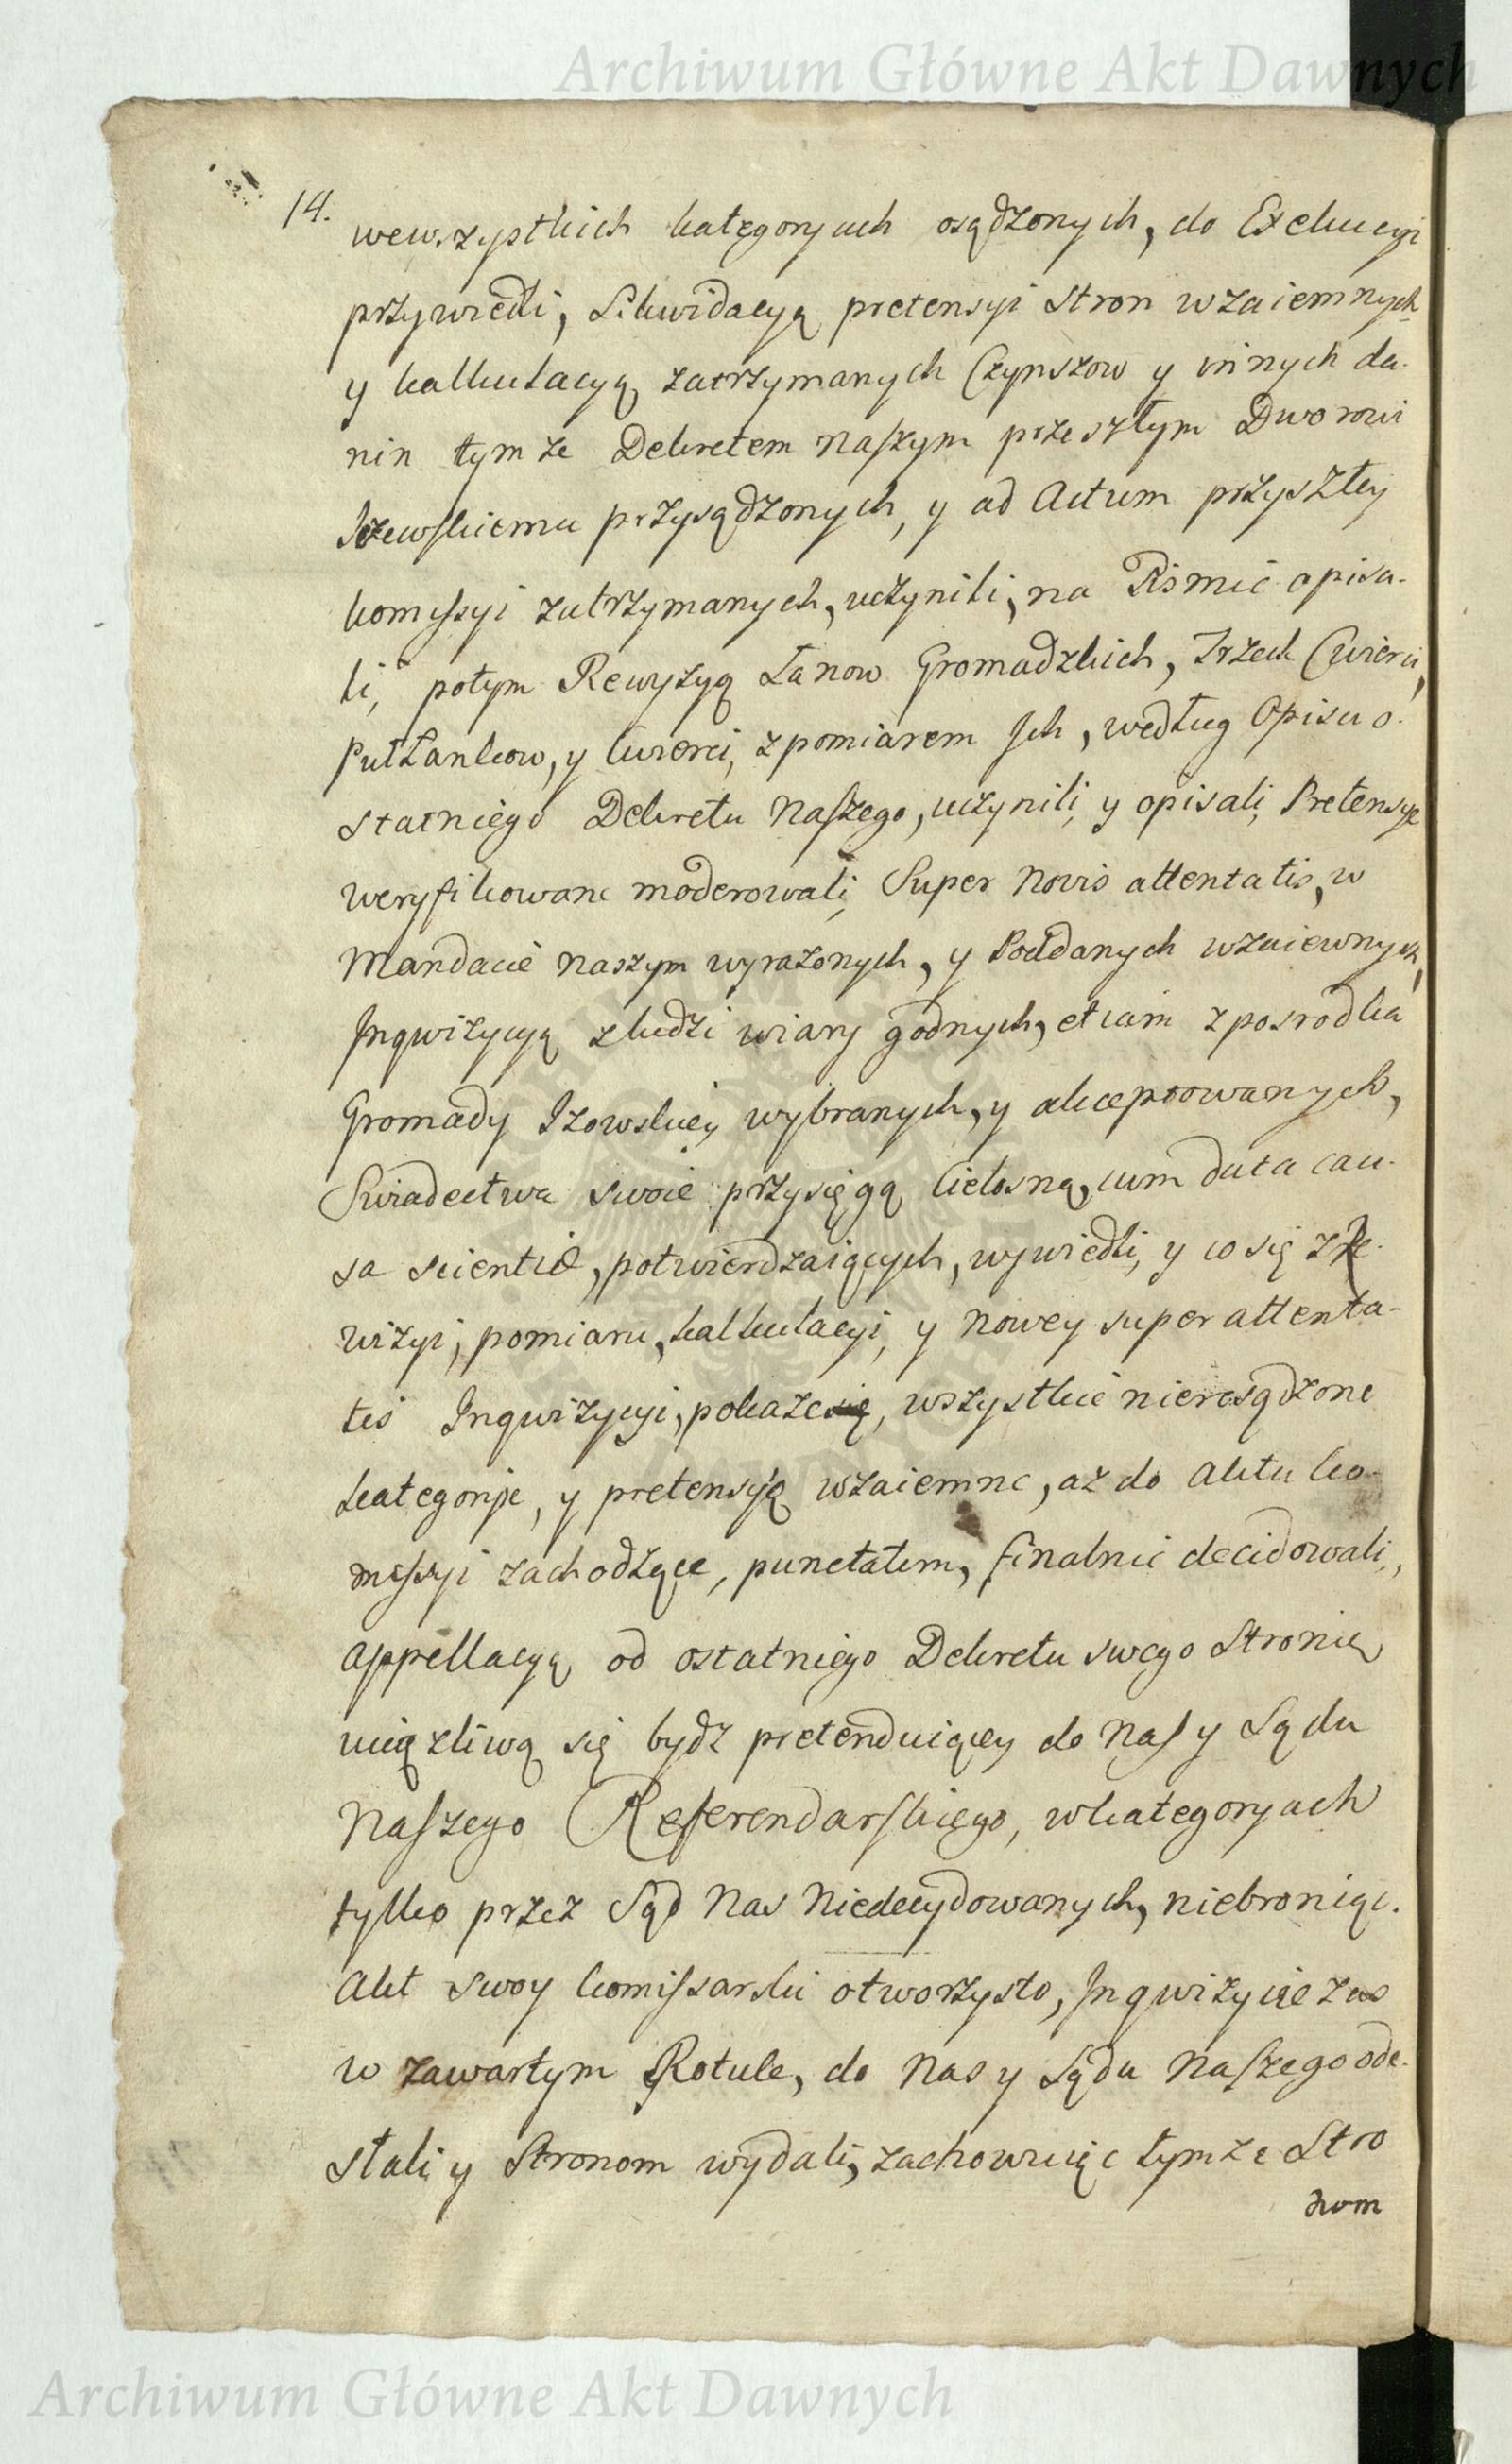 Archiwum Główne Akt Dawnych
14.
wewszystkich kategoryach osądzonych, do Exekucyi
przywiedli, Likwidacyą pretensyi Stron wzaiemnych
y kalkulacyą zatrzymanych Czynszow y innych da-
nin tymże Dekretem Naszym przeszłym Dworowi
Iżewskiemu przysądzonych, y ad Actum przyszłey
komissyi zatrzymanych, uczynili, na Pismie opisa-
li, potym Rewyzyą Łanow Gromadzkich, Trzech Cwierci,
PułŁankow, y Cwierci, z pomiarem Ich, według Opisu o-
statniego Dekretu Naszego, uczynili, y opisali, Pretensye
weryfikowane moderowali, Super Novis attentatis, w
Mandacie Naszym wyrazonych, y Poddanych wzaiewnych,
Inqwizycyą z ludzi wiary godnych, etiam z posrodka
Gromady Izowskiey wybranych, y akceptowanych,
Swiadectwa swoie przysięgą Cielesną, cum data cau-
sa scientiæ, potwierdzaiących, wywiedli, y co się z Re-
wizyi, pomiaru, kalkulacyi, y nowey super attenta-
tis Inqwizycyi, pokaże się, wszystkie nierosądzone
kategorye, y pretensye wzaiemne, aż do Aktu ko-
missyi zachodzące, punctatim, finalnie decidowali,
appellacyą od ostatniego Dekretu swego Stronie
uciązliwą się bydz pretenduiącey do Nas y Sądu
Naszego Referendarskiego, w kategoryach
tylko przez Sąd Nas Niedecydowanych, niebroniąc.
Akt swoy komissarski otworzysto, Inqwizycie zas
w zawartym Rotule, do Nas y Sądu Naszego ode-
słali y Stronom wydali, zachowuiąc tymże Stro
nom
Archiwum Główne Akt Dawnych